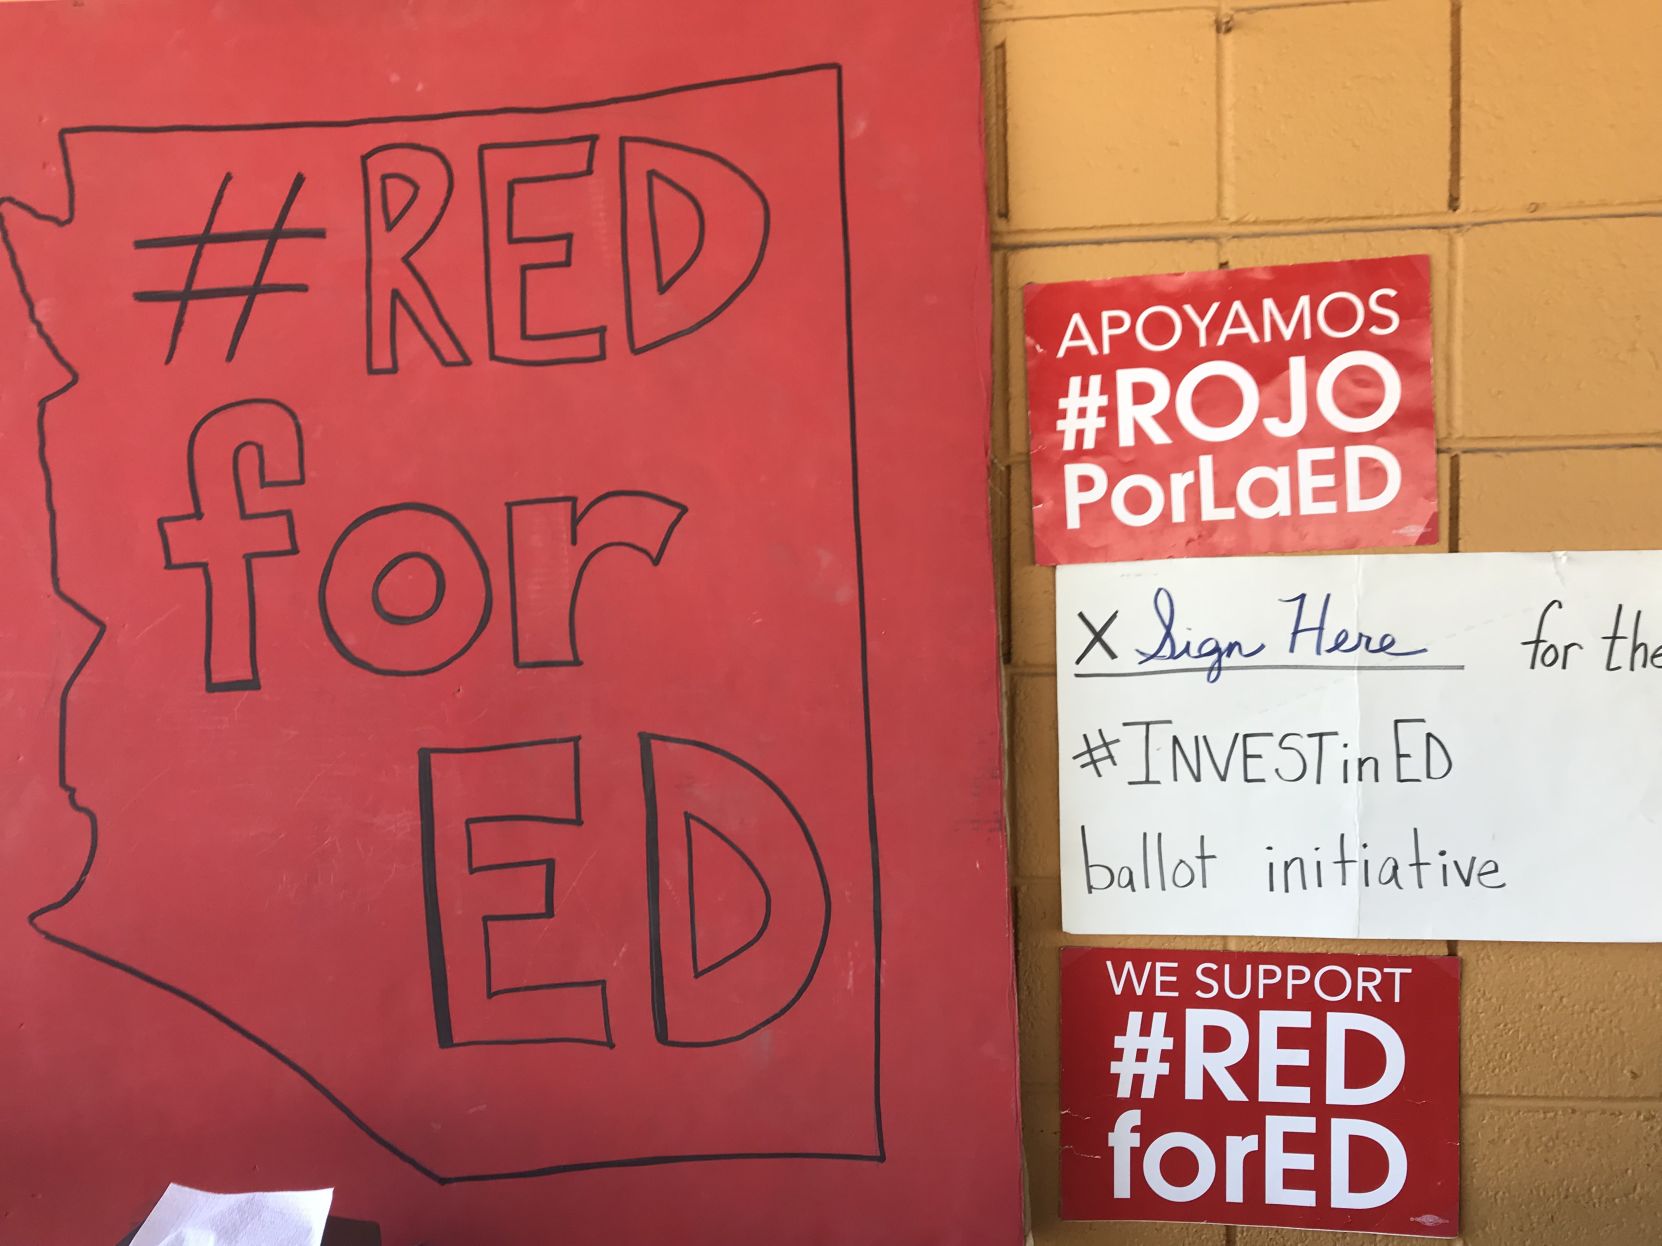 #RED
for
ED
APOYAMOS
#ROJO
PorLaED
X Sign Here for the
#INVESTinED
ballot initiative
WE SUPPORT
#RED
forED